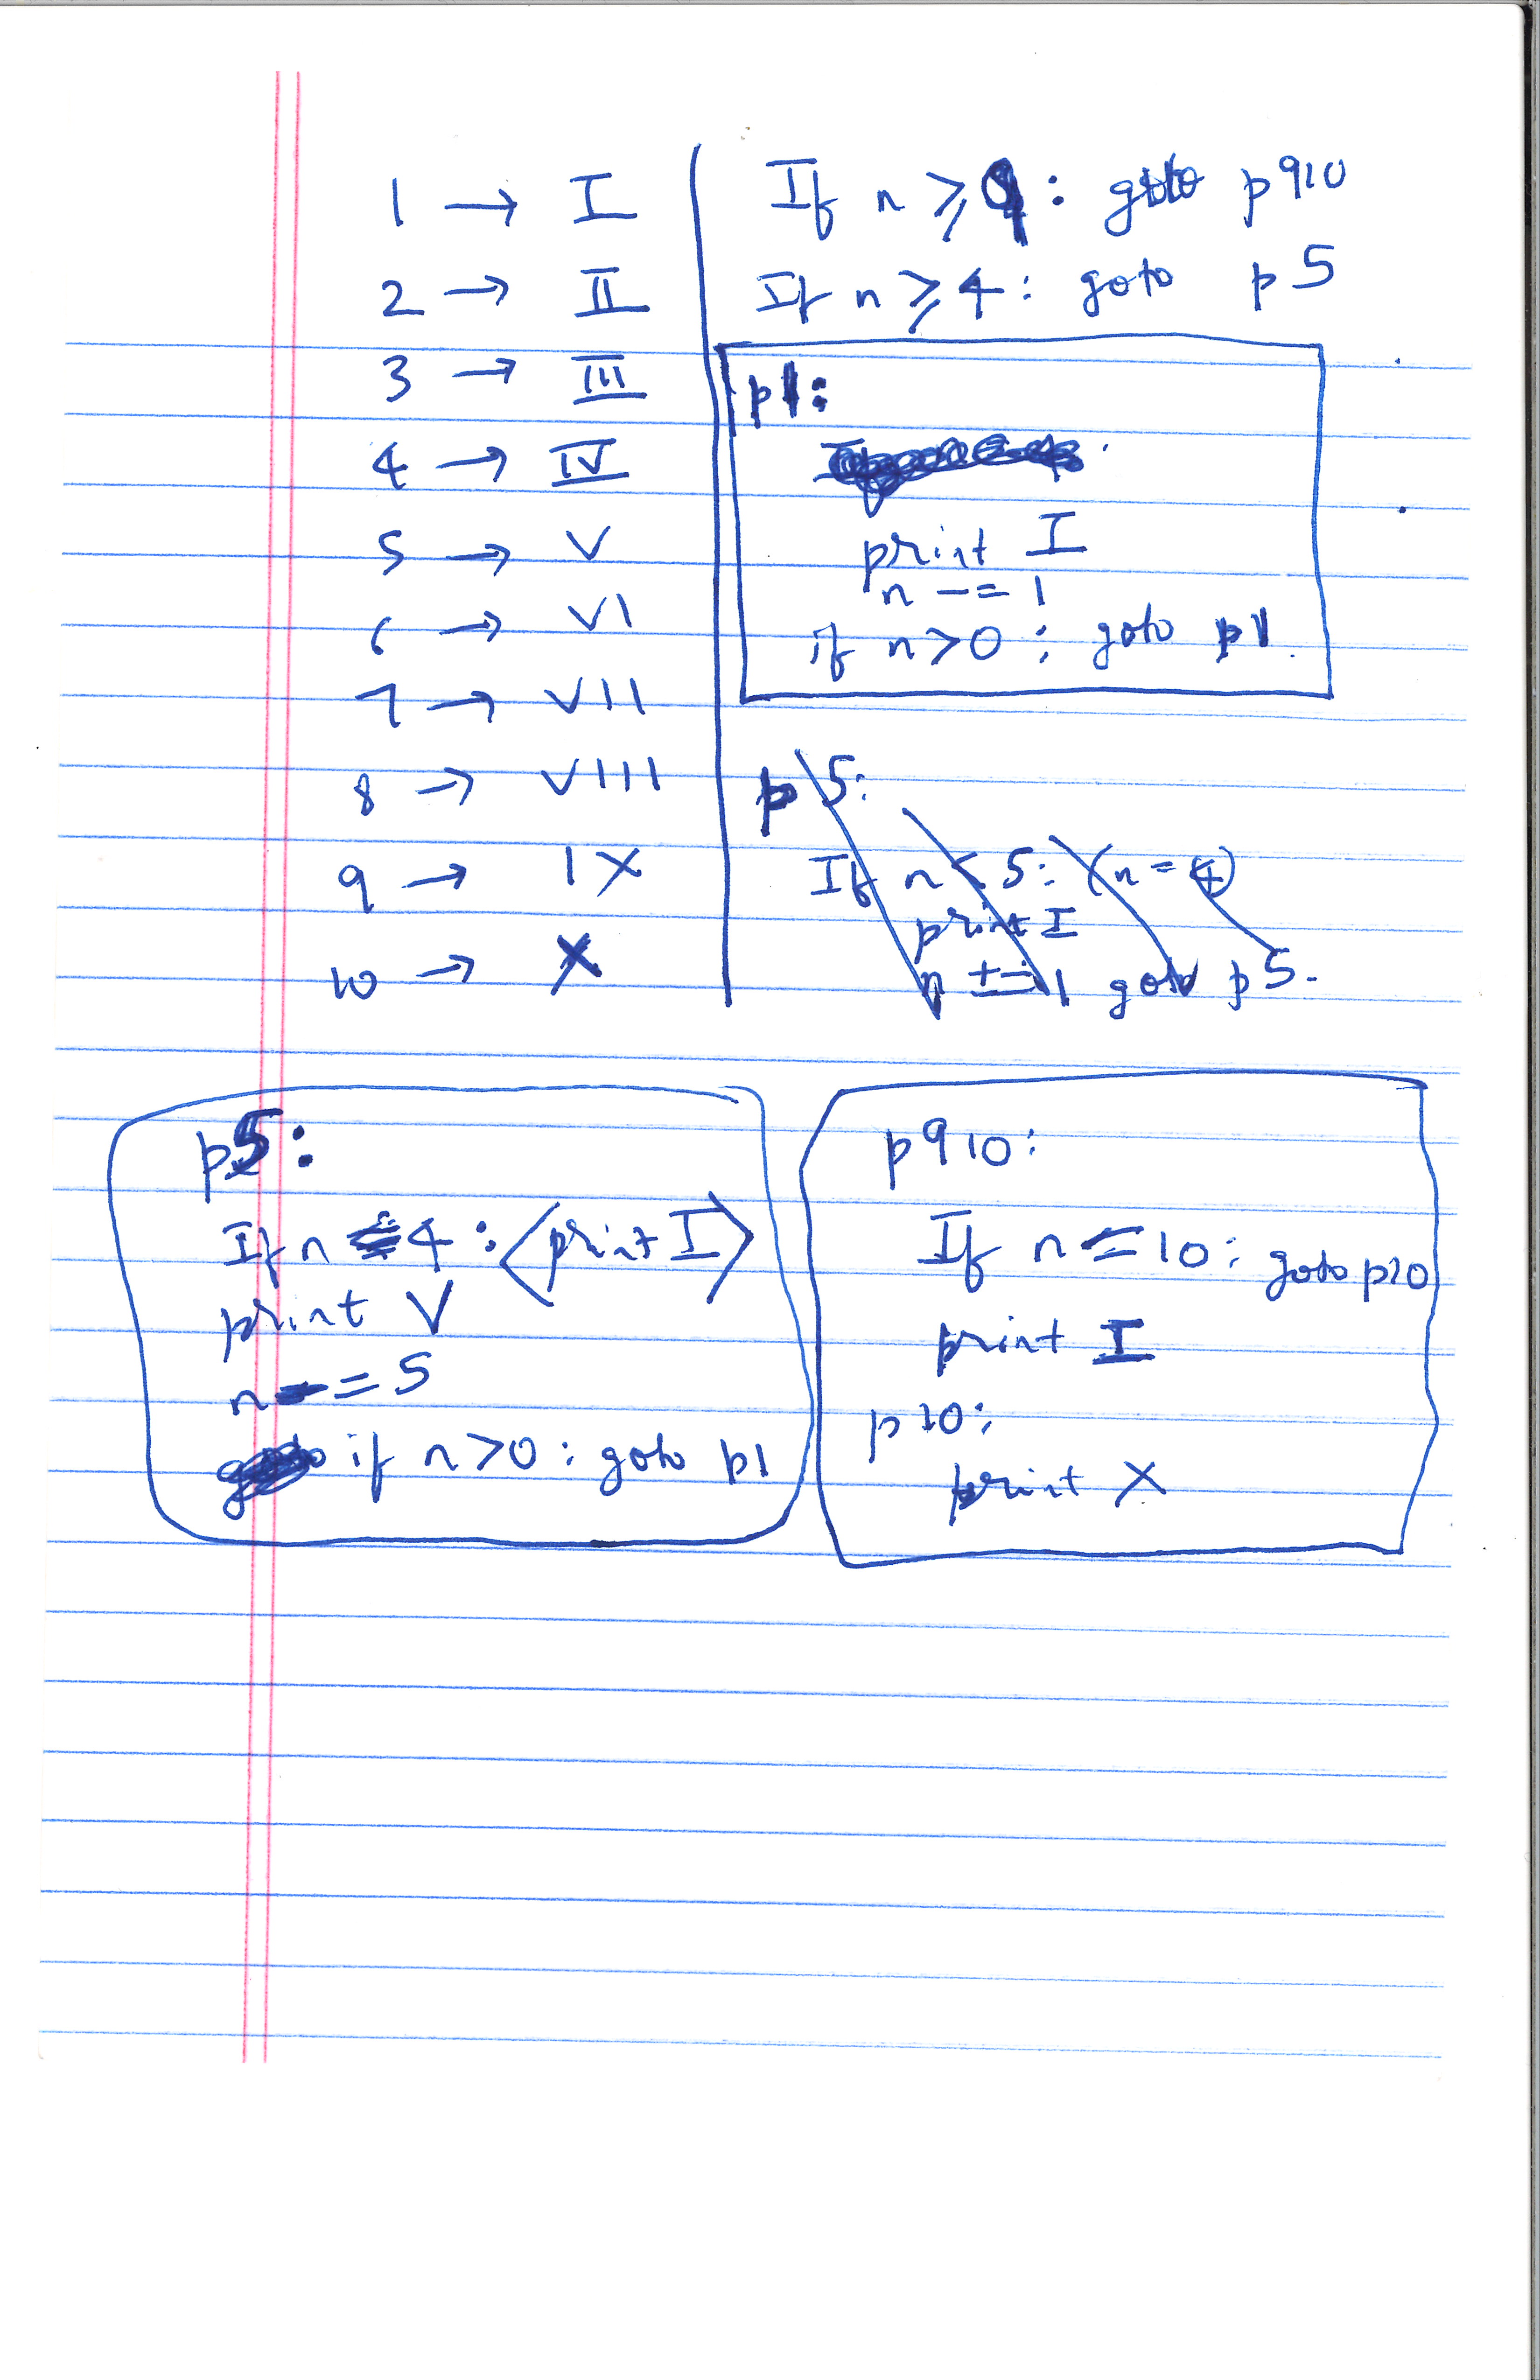 1 → I
2 → II
3 → III
4 → IV
5 → V
6 → VI
7 → VII
8 → VIII
9 → IX
10 → X
If n ≥ 9: goto p910
If n ≥ 4: goto p5
p1:
print I
n -= 1
if n > 0: goto p1.
p5:
If n < 5: (n = 4)
print I
n += 1 goto p5.
p5:
If n = 4: <print I>
print V
n -= 5
if n > 0: goto p1
p910:
If n = 10: goto p10
print I
p10:
print X